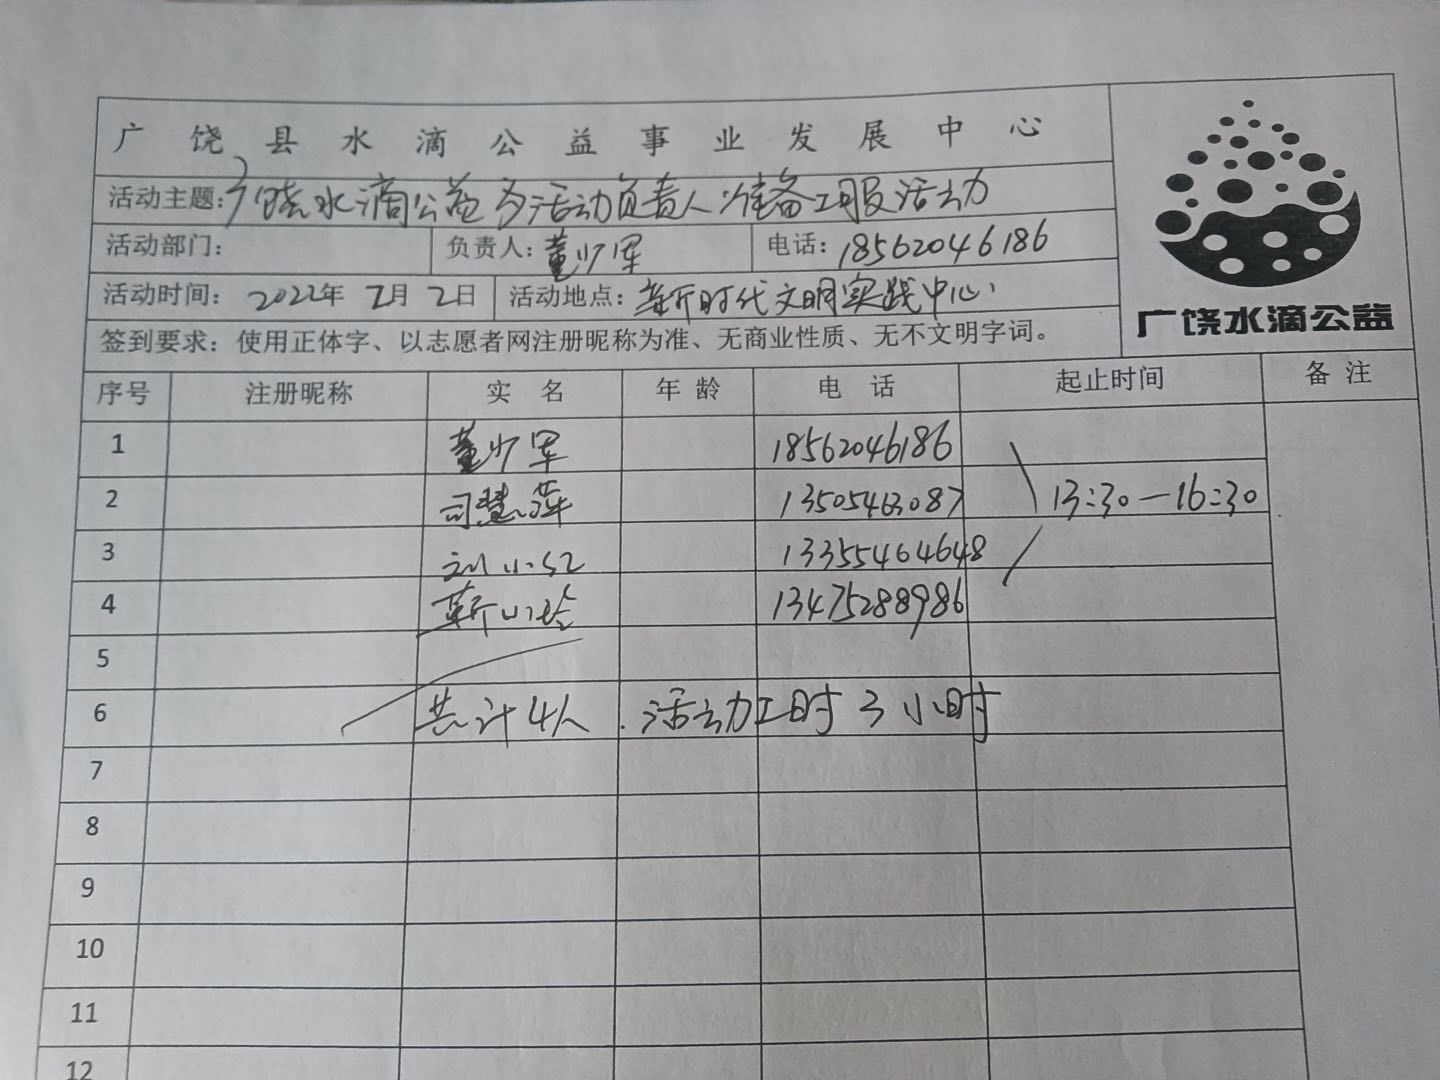 广饶县水滴公益事业发展中心
活动主题：广饶水滴公益为活动负责人准备工服活动
活动部门： 负责人：董少军 电话：18562046186
活动时间：2022年7月2日 活动地点：新时代文明实践中心
广饶水滴公益
签到要求：使用正体字、以志愿者网注册昵称为准、无商业性质、无不文明字词。
序号 注册昵称 实 名 年 龄 电 话 起止时间 备 注
1 董少军 18562046186
2 司慧萍 13505463087 13:30—16:30
3 刘小红 13355464648
4 靳小玲 13475288986
5
6 共计4人．活动工时3小时
7
8
9
10
11
12